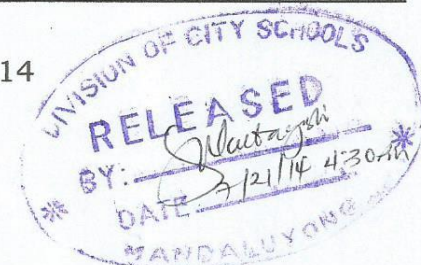 14
DIVISION OF CITY SCHOOLS
RELEASED
BY:
DATE 7/21/14 4:30
MANDALUYONG